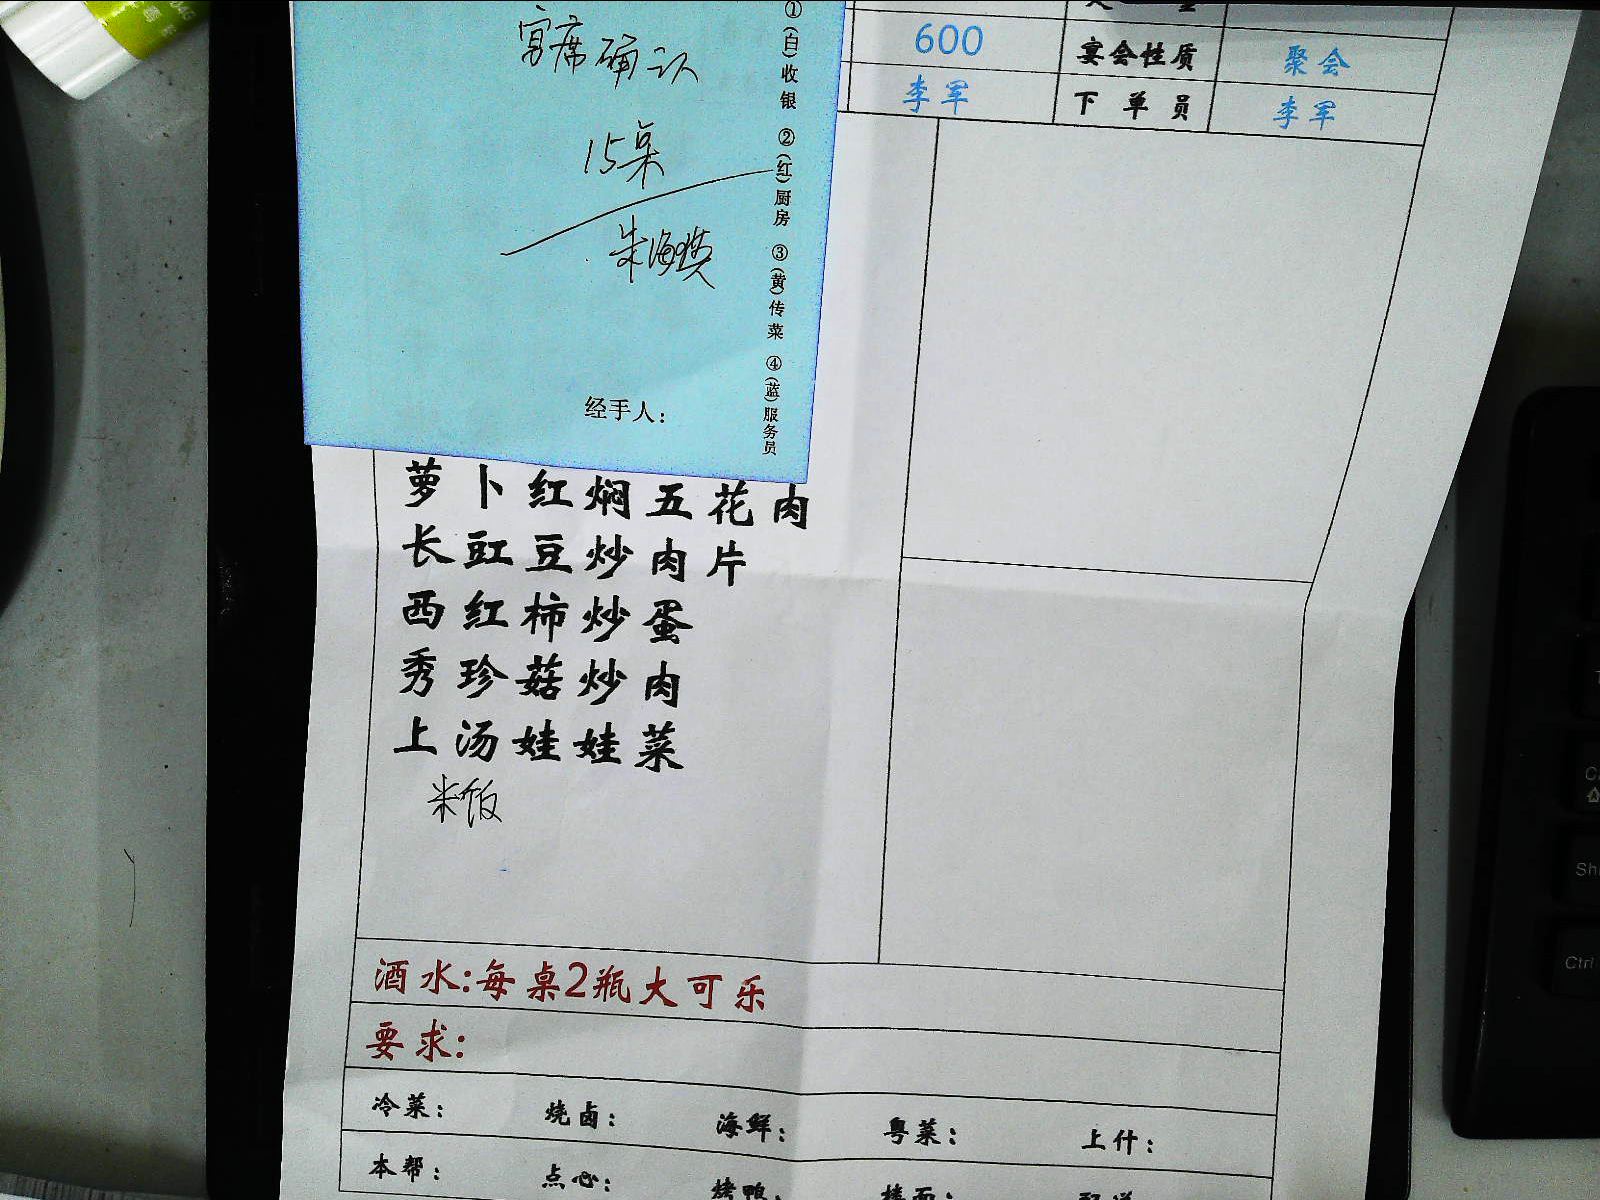 宫席确认
15桌
朱海瑛
①(白)收银 ②(红)厨房 ③(黄)传菜 ④(蓝)服务员
经手人:
600 宴会性质 聚会
李军 下单员 李军
萝卜红焖五花肉
长豇豆炒肉片
西红柿炒蛋
秀珍菇炒肉
上汤娃娃菜
米饭
酒水:每桌2瓶大可乐
要求:
冷菜: 烧卤: 海鲜: 粤菜: 上什:
本帮: 点心: 烤鸭:
Ctrl